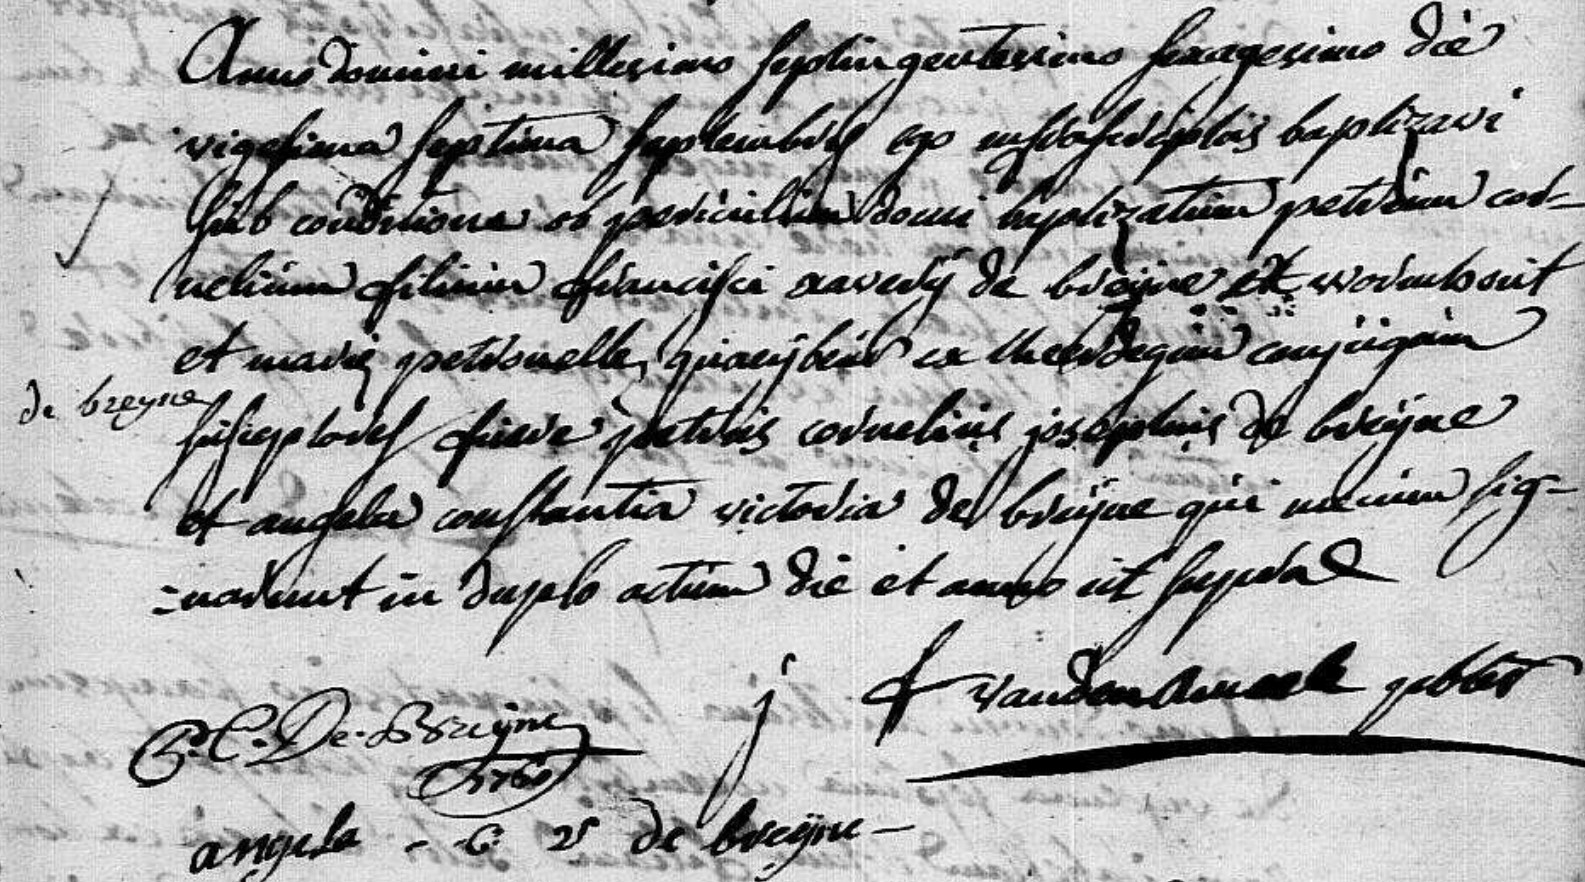 Anno domini millesimo septingentesimo sexagesimo die
vigesima septima septembris ego infrascriptus baptizavi
sub conditione ob periculum domi baptizatum petrum cor-
nelium filium francisci xaverij de breijne ex wormhout
et mariæ petronellæ ex conjugum
de breyne
susceptores fuere petrus cornelius josephus de breijne
et angela constantia victoria de breijne qui mecum sig-
=narunt in duplo actum die et anno ut supra
j f pbter
P. C. De Breijne
1760
angela - C v de breijne -